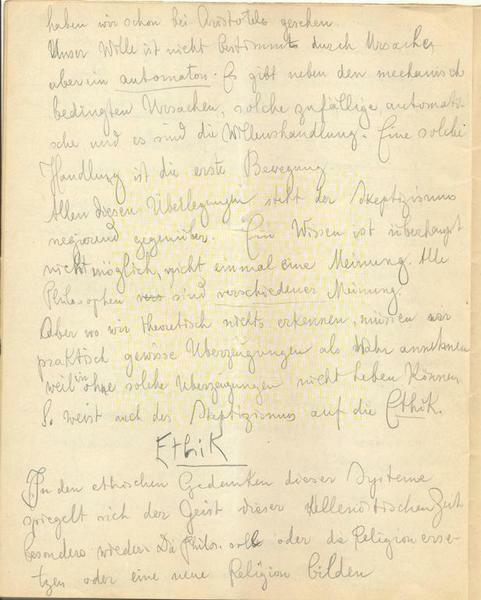 haben wir schon bei Aristoteles gesehen.
Unser Wille ist nicht bestimmt durch Ursachen
aber ein automaton. Es gibt neben den mechanisch
bedingten Ursachen, solche zufällige automati-
sche und es sind die Willenshandlung. Eine solche
Handlung ist die erste Bewegung
Allen diesen Überlegungen steht der Skeptizismus
negierend gegenüber. Ein Wissen ist überhaupt
nicht möglich, nicht einmal eine Meinung. Alle
Philosophen sind verschiedener Meinung.
Aber wo wir theoretisch nichts erkennen, müssen wir
praktisch gewisse Überzeugungen als Wahr annehmen
weil wir ohne solche Überzeugungen nicht leben können
So weist auch der Skeptizismus auf die Ethik.
Ethik
In den ethischen Gedanken dieser Systeme
spiegelt sich der Geist dieser Hellenistischen Zeit
besonders wieder. Die Philos. soll oder die Religion erse-
tzen oder eine neue Religion bilden